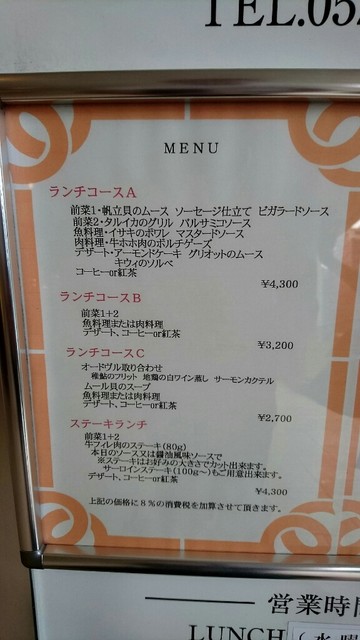 TEL.05
MENU
ランチコースA
前菜1・帆立貝のムース ソーセージ仕立て ビガラードソース
前菜2・タルイカのグリル バルサミコソース
魚料理・イサキのポワレ マスタードソース
肉料理・牛ホホ肉のポルチゲーズ
デザート・アーモンドケーキ グリオットのムース
キウィのソルベ
コーヒーor紅茶
¥4,300
ランチコースB
前菜1+2
魚料理または肉料理
デザート、コーヒーor紅茶
¥3,200
ランチコースC
オードヴル取り合わせ
稚鮎のフリット 地鶏の白ワイン蒸し サーモンカクテル
ムール貝のスープ
魚料理または肉料理
デザート、コーヒーor紅茶
¥2,700
ステーキランチ
前菜1+2
牛フィレ肉のステーキ(80g)
本日のソース又は醤油風味ソースで
※ステーキはお好みの大きさでカット出来ます。
サーロインステーキ(100g〜)もご用意出来ます。
デザート、コーヒーor紅茶
¥4,300
上記の価格に8%の消費税を加算させて頂きます。
営業時
LUNCH